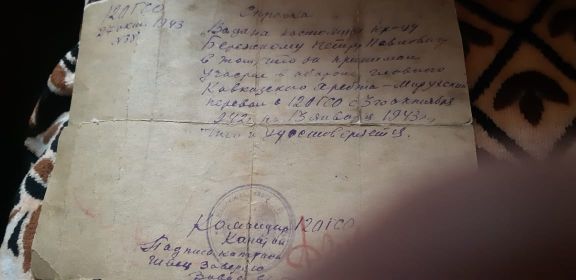 120 ГСО
1943
Справка
Выдана настоящая кр-цу
Бережному Петру Павловичу
в том, что он принимал
участие в обороне главного
Кавказского хребта - Марухский
перевал в 120 ГСО с 3го октября
1942г по 13 января 1943г.,
что и удостоверяется.
Командир 120 ГСО
Капитан
Подпись капитана
заверяю